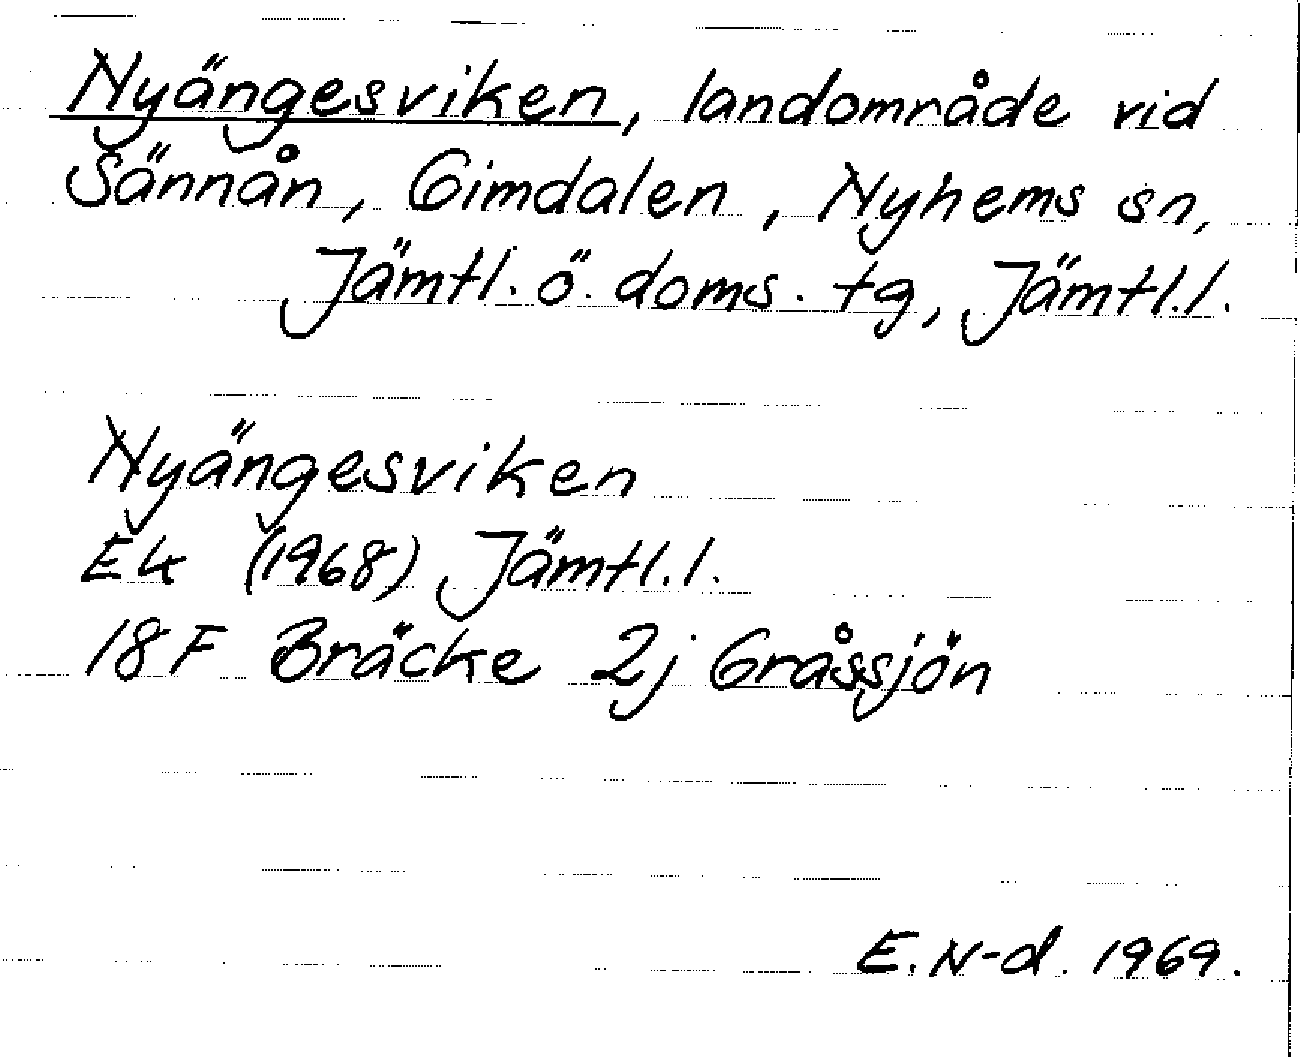 Nyängesviken, landområde vid
Sännån, Gimdalen, Nyhems sn,
Jämtl. ö. doms. tg, Jämtl.l.
Nyängesviken
Ek (1968) Jämtl.l.
18F Bräcke 2j Gråssjön
E.N-d. 1969.